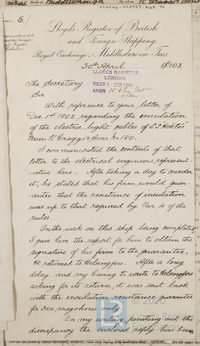 Lloyd's Register of British
and Foreign Shipping.
Royal Exchange, Middlesbrough-on-Tees
30th April 1903
LLOYDS REGISTER
LONDON
The Secretary
Sir
With reference to your letter of
Dec 1st 1902 regarding the insulation
of the electric light cables of S.S.
I communicated the contents of that
letter to the electrical engineers represent-
ative here. After taking a day to consider
it, he stated that his firm would guar-
antee that the resistance of insulation
was up to that required by Par 4 of the
rules.
On the work on this ship being completed
I gave him the report for him to obtain the
signature of his firm to the guarantee.
He returned to Helsingfors. After a long
delay, and my having to write to Helsingfors
asking for its return, it was sent back
with the insulation resistance guarantee
for 300 megohms only.
On my writing pointing out the
discrepancy the enclosed reply has been